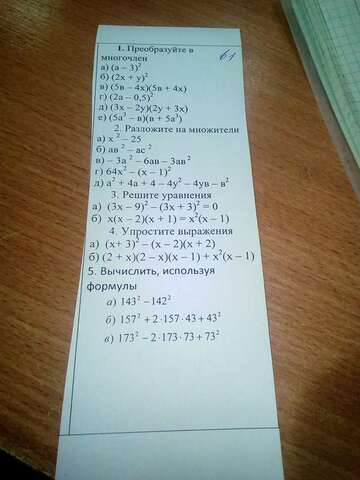 1. Преобразуйте в
многочлен
а) (а – 3)²
б) (2х + у)²
в) (5в – 4х)(5в + 4х)
г) (2а – 0,5)²
д) (3х – 2у)(2у + 3х)
е) (5а³ – в)(в + 5а³)
2. Разложите на множители
а) х ² – 25
б) ав ² – ас ²
в) – 3а ² – 6ав – 3ав²
г) 64х² – (х – 1)²
д) а² + 4а + 4 – 4у² – 4ув – в²
3. Решите уравнения
а) (3х – 9)² – (3х + 3)² = 0
б) х(х – 2)(х + 1) = х²(х – 1)
4. Упростите выражения
а) (х+ 3)² – (х – 2)(х + 2)
б) (2 + х)(2 – х)(х – 1) + х²(х – 1)
5. Вычислить, используя
формулы
а) 143² – 142²
б) 157² + 2 · 157 · 43 + 43²
в) 173² – 2 · 173 · 73 + 73²